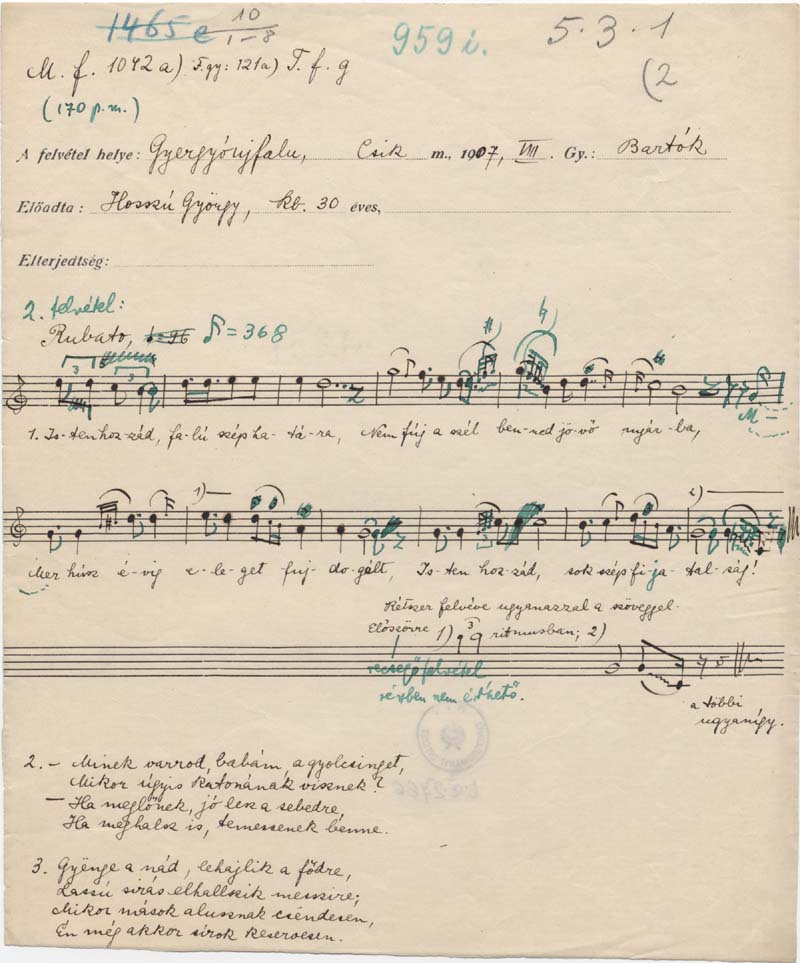 1465 e 10/1-8
959 i.
5.3.1
(2
M. f. 1042 a) F.gy: 121a) T. f. g
(170 p.m.)
A felvétel helye: Gyergyóujfalu, Csik m., 1907, VIII. Gy.: Bartók
Előadta: Hosszú György, kb. 30 éves,
Elterjedtség:
2. felvétel:
Rubato, ♪=368
3 3
1. Is-ten hoz-zád, fa-lú szép ha-tá-ra, Nem fúj a szél ben-ned jö-vő nyár-ba,
M-
1) 2)
Mer húsz é-vig e-le-get fuj-do-gált, Is-ten hoz-zád, sok szép fi-ja-tal-ság!
Kétszer felvéve ugyanazzal a szöveggel.
Először 1) 3 ritmusban; 2)
recsegő felvétel
részben nem érthető.
a többi
ugyanígy.
2. – Minek varrod, babám a gyolcsinget,
Mikor úgyis katonának visznek?
– Ha meglőnek, jó lesz a sebedre,
Ha meghalsz is, temessenek benne.
3. Gyönge a nád, lehajlik a fődre,
Lassú sirás elhallszik messzire;
Mikor mások alusznak cséndesen,
Én még akkor sírok keservesen.